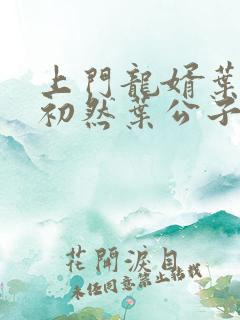 上門龍婿葉
初然葉公子
花開淚目
未任同意禁止转载